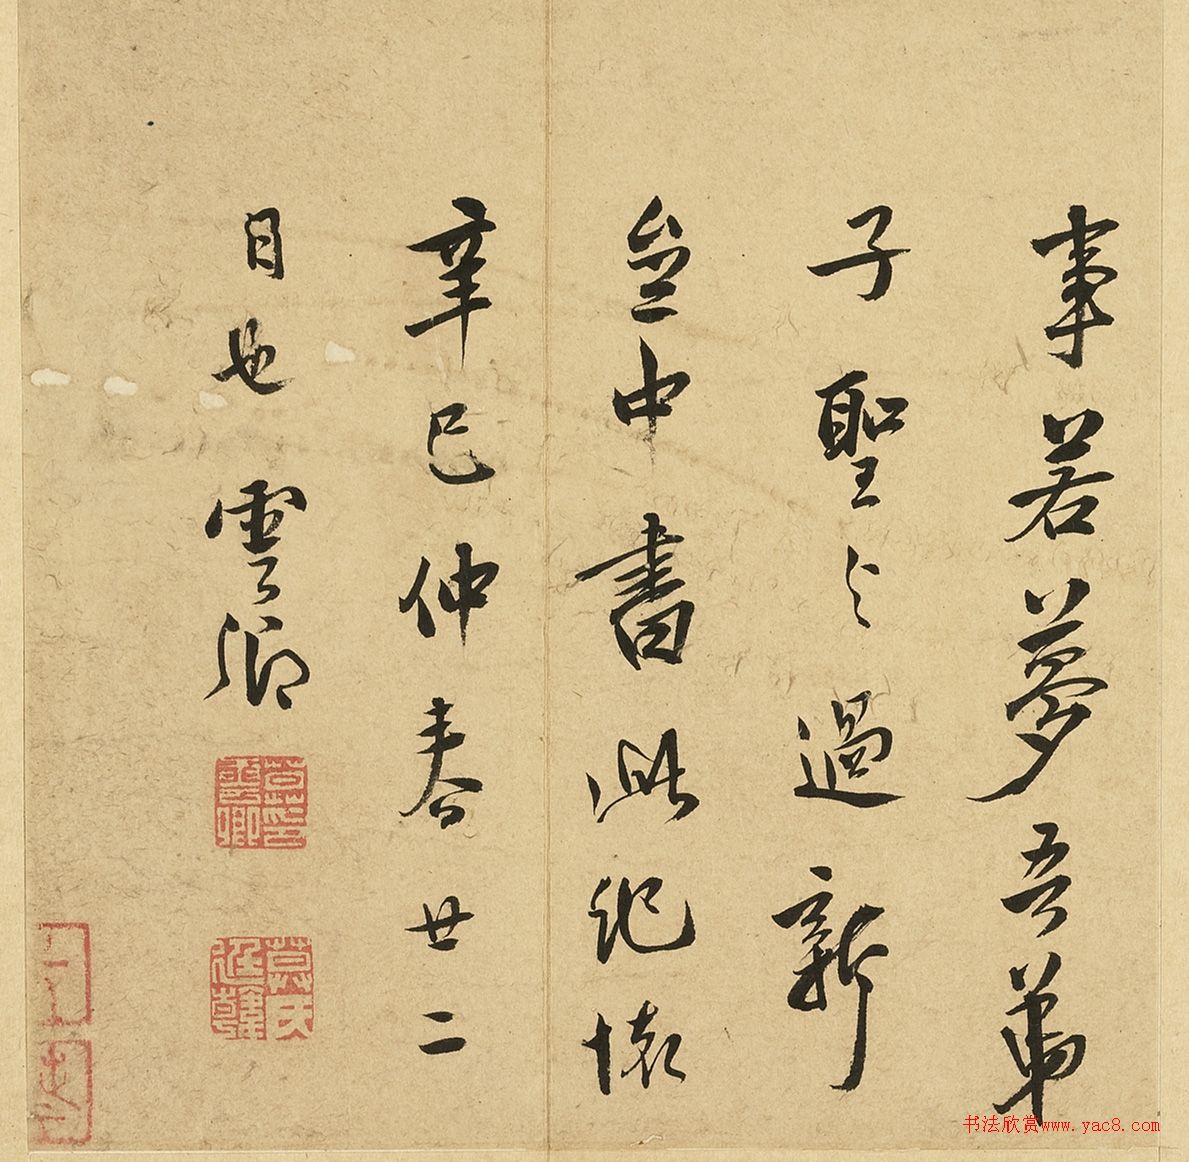 事若夢吾弟
子聖過新
中書此紀懷
辛巳仲春廿二
日也雲卿
莫印雲卿
莫氏廷韓
书法欣赏www.yac8.com